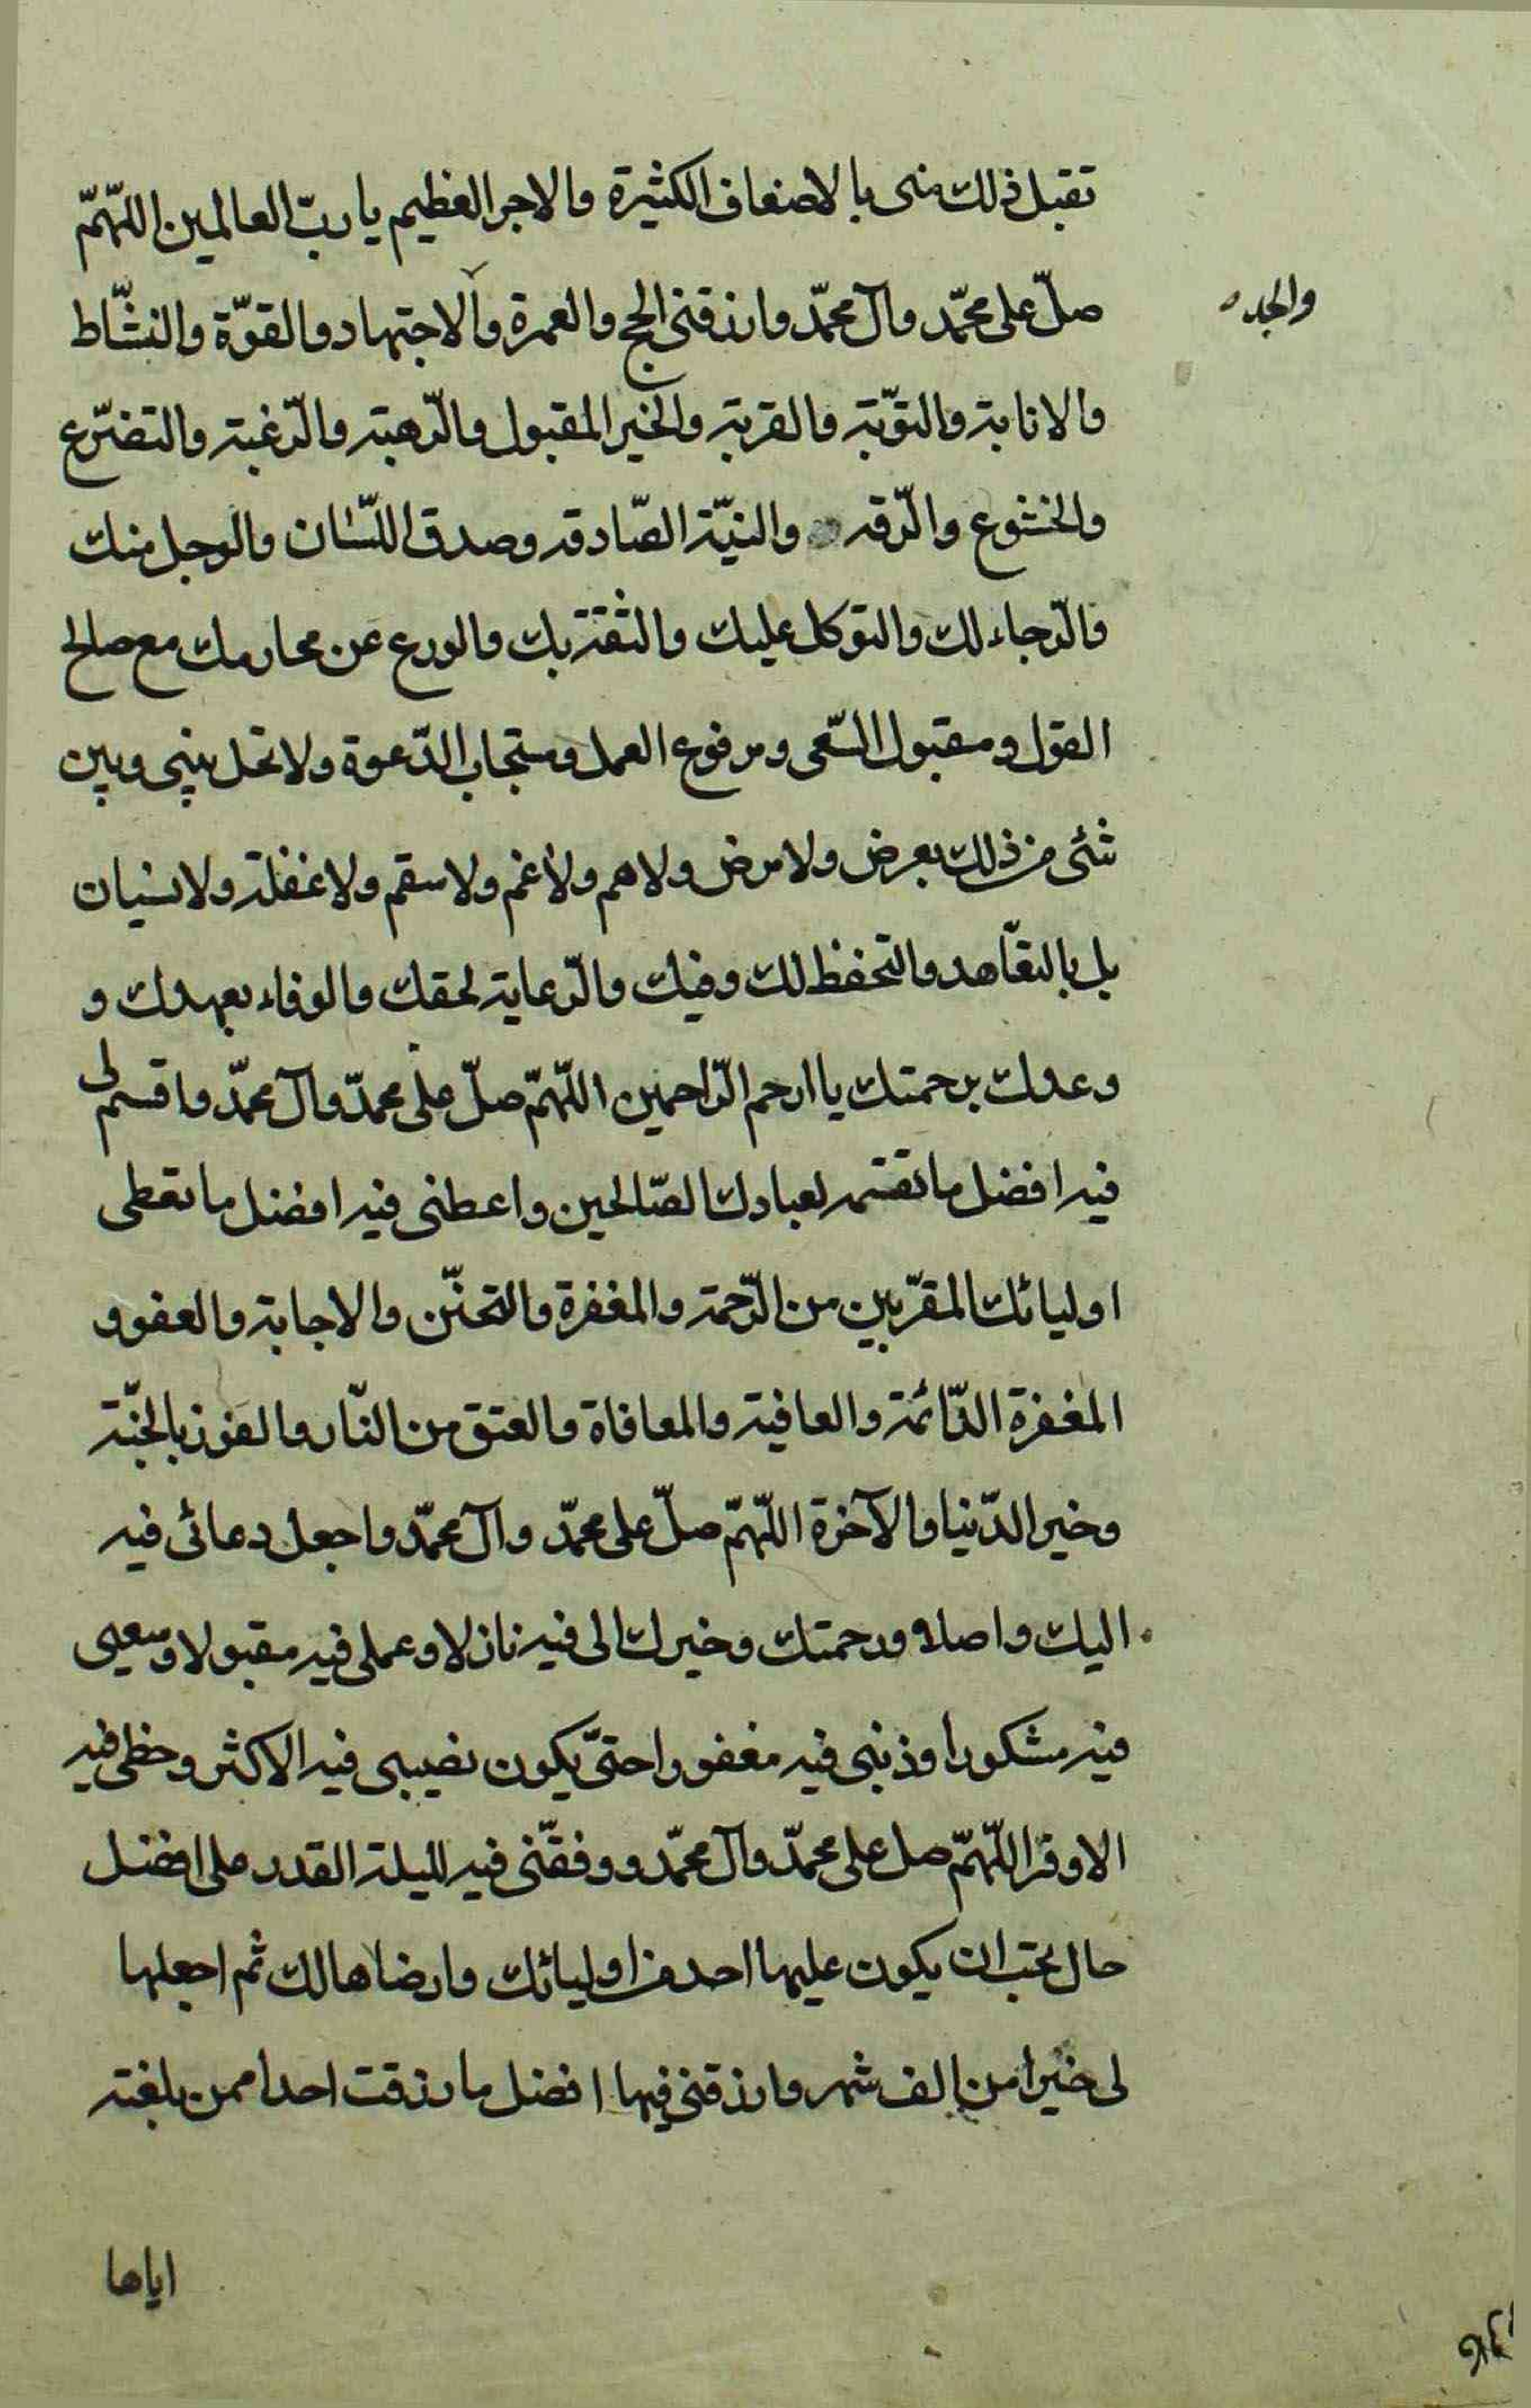 تقبل ذلك منى بالاضعاف الكثيرة والاجر العظيم يا ربّ العالمين اللّهمّ
صلّ على محمّد وآل محمّد وارزقنى الحج والعمرة والاجتهاد والقوّة والنشّاط
والجد
والانابة والتوّبة والقربة والخير المقبول والرّهبة والرّغبة والتضرّع
والخشوع والرّقه والنيّة الصّادقه وصدق اللّسان والوجل منك
والرّجاء لك والتوكل عليك والثقة بك والورع عن محارمك مع صالح
القول ومقبول السّعى ومرفوع العمل ومستجاب الدّعوة ولا تحل بينى وبين
شئى من ذلك بعرض ولا مرض ولا هم ولا غم ولا سقم ولا غفلة ولا نسيان
بل بالتعّاهد والتحفظ لك وفيك والرّعاية لحقك والوفاء بعهدك و
وعدك برحمتك يا ارحم الرّاحمين اللّهمّ صلّ على محمدّ وآل محمدّ واقسم لى
فيه افضل ما تقسّمه لعبادك الصّالحين واعطنى فيه افضل ما تعطى
اوليائك المقرّبين من الرّحمة والمغفرة والتحنّن والاجابة والعفو و
المغفرة الدّائمة والعافية والمعافاة والعتق من النّار والفوز بالجنّة
وخير الدّنيا والآخرة اللّهمّ صلّ على محمدّ وآل محمّد واجعل دعائى فيه
اليك واصلا ورحمتك وخيرك الى فيه نازلا وعملى فيه مقبولا وسعيى
فيه مشكورا وذنبى فيه مغفورا حتىّ يكون نصيبى فيه الاكثر وحظى فيه
الاوفر اللّهمّ صل على محمدّ وآل محمّد ووفقّنى فيه لليلة القدر على افضل
حال تحب ان يكون عليها احد من اوليائك وارضاها لك ثم اجعلها
لى خيرا من الف شهر وارزقنى فيها افضل ما رزقت احدا ممن بلغته
اياها